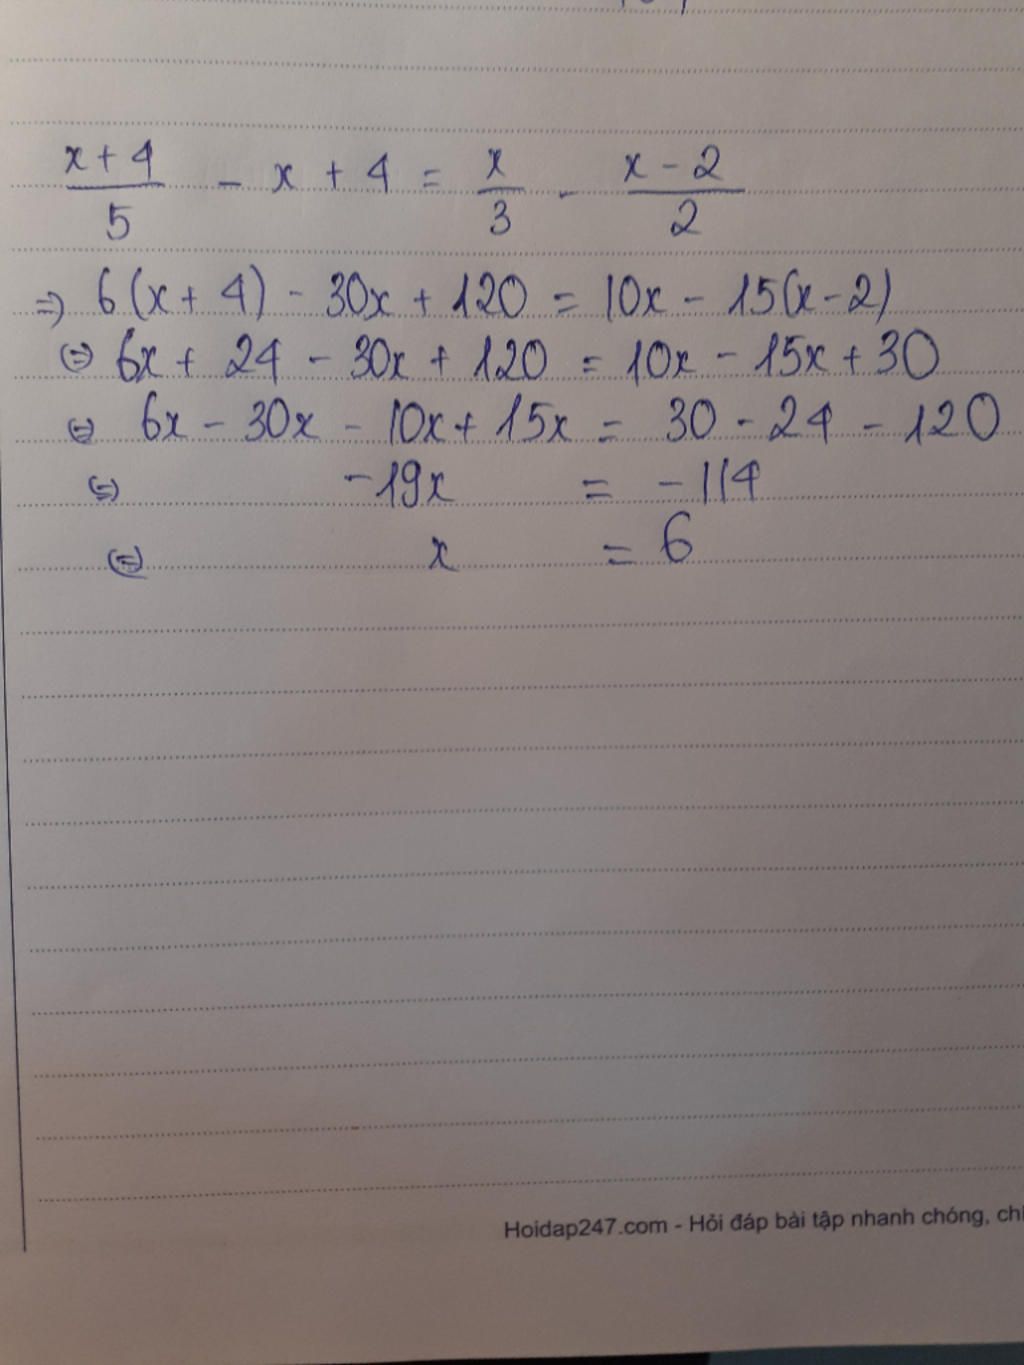 x + 4 / 5 - x + 4 = x / 3 - x - 2 / 2
=> 6(x + 4) - 30x + 120 = 10x - 15(x - 2)
(=) 6x + 24 - 30x + 120 = 10x - 15x + 30
(=) 6x - 30x - 10x + 15x = 30 - 24 - 120
(=) -19x = -114
(=) x = 6
Hoidap247.com - Hỏi đáp bài tập nhanh chóng, chí